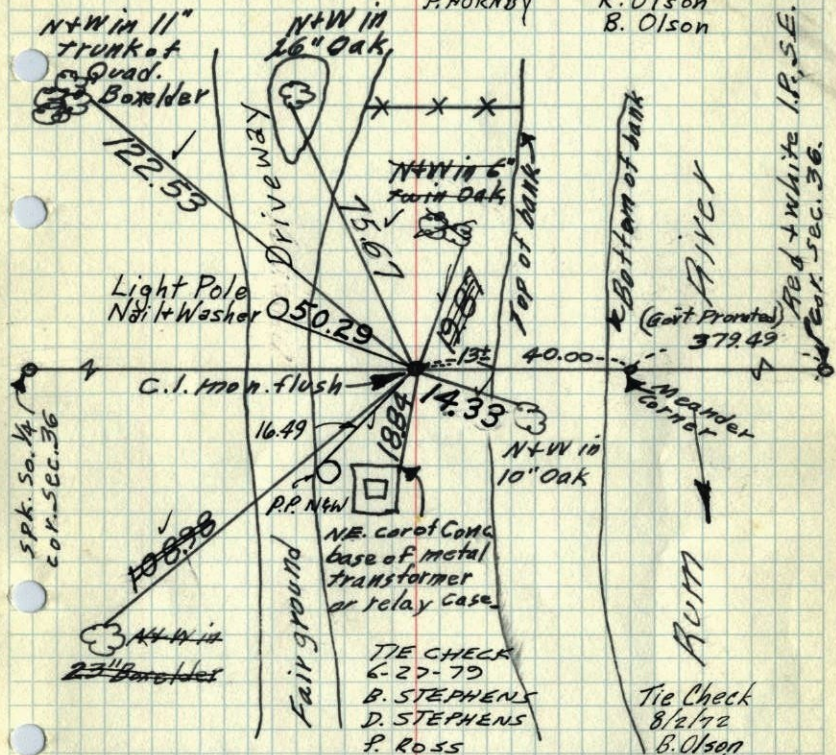 P. HORNBY
R. Olson
B. Olson
N+W in 11"
trunk of
Quad.
Boxelder
N+W in
26" Oak
122.53
Driveway
75.67
N+W in 6"
twin Oak
19.85
Top of bank
Bottom of bank
River
Red + White I.P., S.E.
cor. sec. 36.
Light Pole
Nail + Washer
50.29
(Gov't Prorated)
379.49
13±
40.00
C.I. mon. flush
14.33
Meander
Corner
spk. So. 1/4
cor. sec. 36
16.49
18.84
N+W in
10" Oak
P.P. N&W
N.E. cor of Conc
base of metal
transformer
or relay case
108.98
N+W in
23" Boxelder
Fairground
Rum
TIE CHECK
6-27-79
B. STEPHENS
D. STEPHENS
P. ROSS
Tie Check
8/2/72
B. Olson